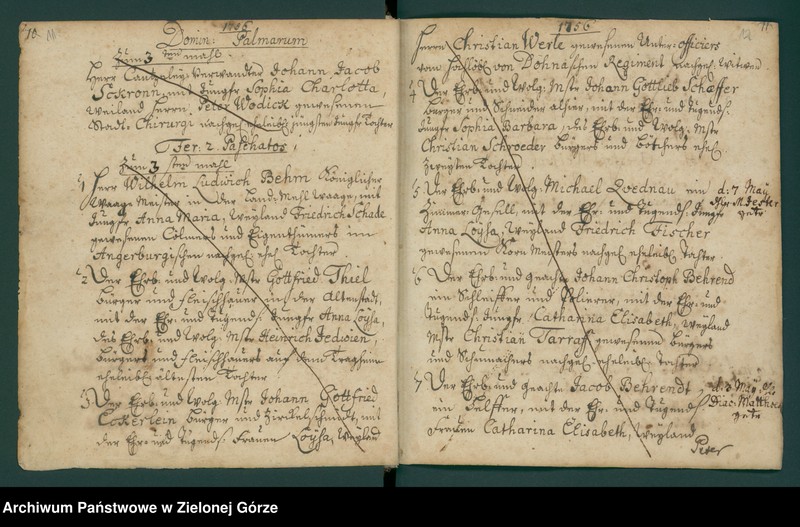 10.
1756
Domin: Palmarum
Zum 3 ten mahl.
Herr Cantzeley-verwandter Johann Jacob
Sckronn, mit Jungfr Sophia Charlotta,
weiland Herrn Peter Wodick gewesenen
Stadt-Chirurgi nachgel. ehel. jüngsten Jungfr Tochter
Fer: 2. Paschatos,
Zum 3 ten mahl
1 Herr Wilhelm Ludwich Behm Königlicher
Waage-Meister in der Land-Mehl-Waage, mit
Jungfr Anna Maria, Weyland Friedrich Schade
gewesenen Cölmers und Eigenthümers im
Angerburgischen nachgel. ehel. Tochter
2 Der Ehrb: und Wolg: Mstr Gottfried Thiel
Bürger und Fleischhauer in der Altenstadt,
mit der Ehr: und Tugends: Jungfr Anna Loysa,
des Ehrb: und Wolg: Mstr Heinrich
Bürgers und Fleischhauers auf dem Tragheim
ehel. ältesten Tochter
3 Der Ehrb: und Wolg: Mstr Johann Gottfried
Eckerlein Bürger und Zirkelschmidt, mit
der Ehr: und Tugends: Frauen Loysa, Weyland
1756
11.
12
Herrn Christian Werle gewesenen Unter-officiers
vom Hochlöbl. von Dohnaschen Regiment nachgel. Witwen
4 Der Ehrb: und Wolg: Mstr Johann Gottlieb Schäffer
Bürger und Schneider alhier, mit der Ehr: und Tugends:
Jungfr Sophia Barbara, des Ehrb: und Wolg: Mstr
Christian Schroeder Bürgers und Böttchers ehel.
zweyten Tochter
5 Der Ehrb: und Wolg: Michael Qvednau ein
Zimmer-Gesell, mit der Ehr: und Tugends: Jungfr
Anna Loysa, Weyland Friedrich Fischer
gewesenen Korn-Messers nachgel. ehel. Tochter
d: 7 May
6 Der Ehrb: und geachte Johann Christoph Behrend
ein Schleiffer und Polirer, mit der Ehr: und
Tugends: Jungfr Catharina Elisabeth, Weyland
Mstr Christian Tarraß gewesenen Bürgers
und Schumachers nachgel. ehel. Tochter
7 Der Ehrb: und geachte Jacob Behrendt
ein Helffer, mit der Ehr: und Tugends
Frauen Catharina Elisabeth, Weyland
Peter
Archiwum Państwowe w Zielonej Górze